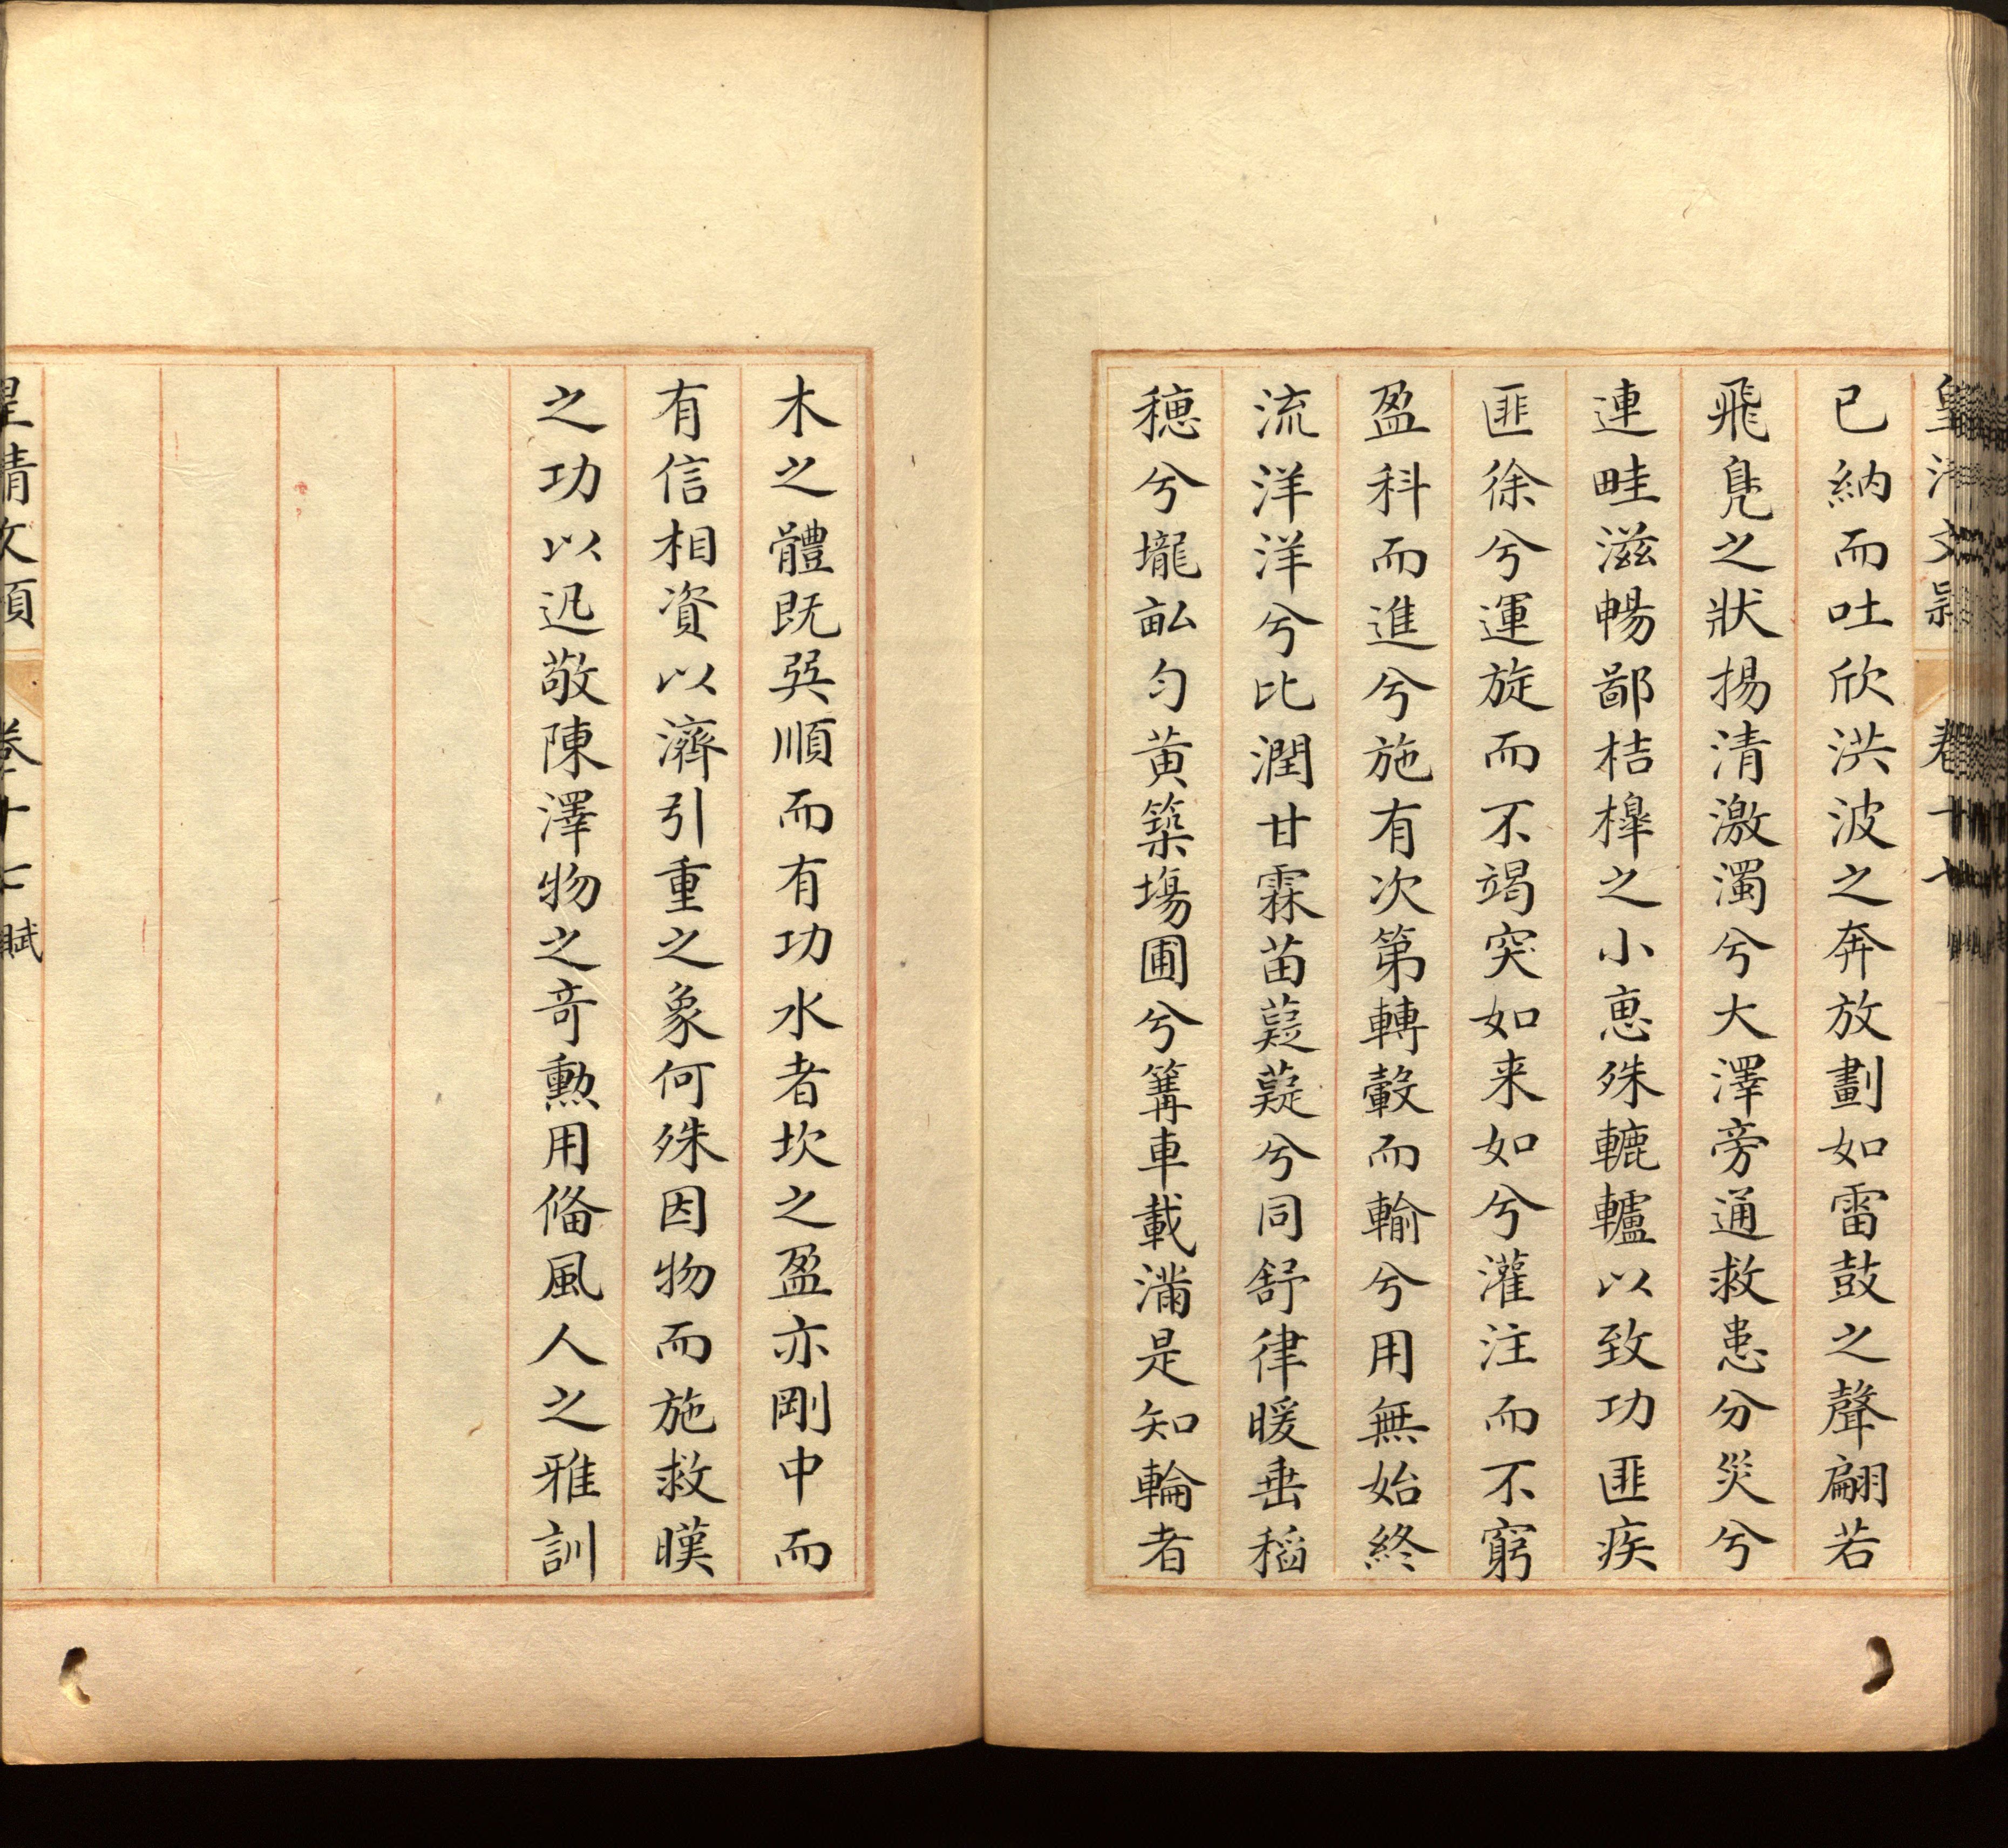 皇清文穎 卷十七
已納而吐欣洪波之奔放劃如雷鼓之聲翩若
飛鳧之狀揚清激濁兮大澤旁通救患分災兮
連畦滋暢鄙桔槹之小恵殊轆轤以致功匪疾
匪徐兮運旋而不竭突如来如兮灌注而不窮
盈科而進兮施有次第轉轂而輸兮用無始終
流洋洋兮比潤甘霖苗薿薿兮同舒律暖垂稻
穂兮壠畝勻黄築塲圃兮篝車載滿是知輪者
木之體既巽順而有功水者坎之盈亦剛中而
有信相資以濟引重之象何殊因物而施救暵
之功以迅敬陳澤物之竒勲用俻風人之雅訓
皇清文穎 卷十七 賦